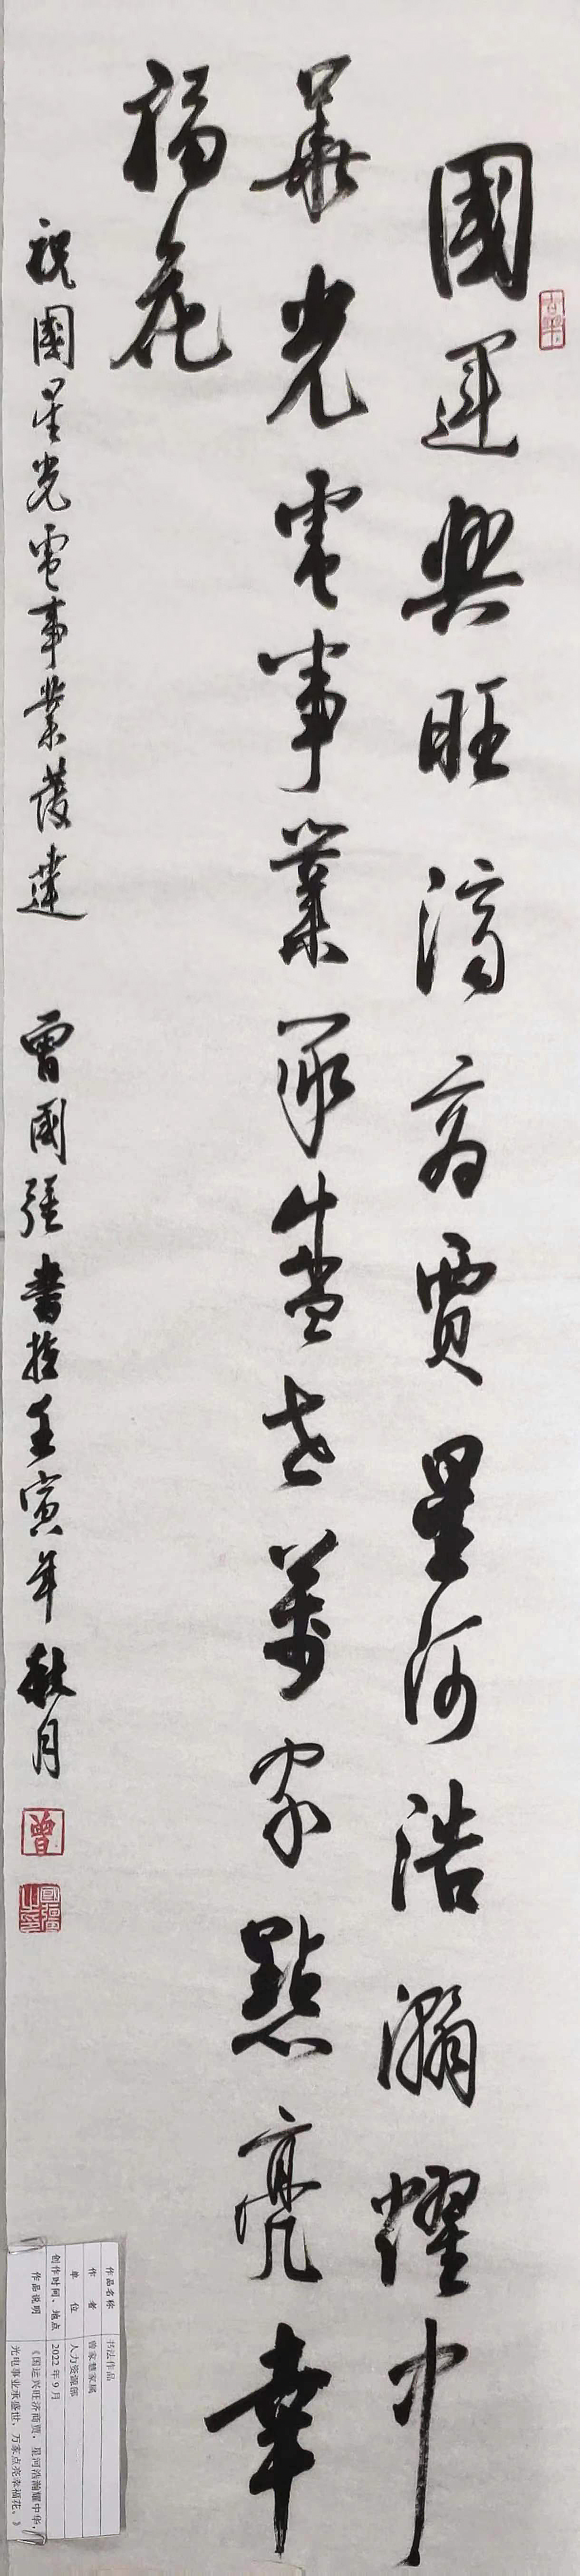 國運興旺濟商賈星河浩瀚耀中
華光電事業承盛世萬家點亮幸
福花
祝國星光電事業發達 曾國强書於壬寅年秋月
曾
作品名称 书法作品
作者 曾家慧家属
单位 人力资源部
创作时间、地点 2022年9月
作品说明 《国运兴旺济商贾，星河浩瀚耀中华，
光电事业承盛世，万家点亮幸福花。》